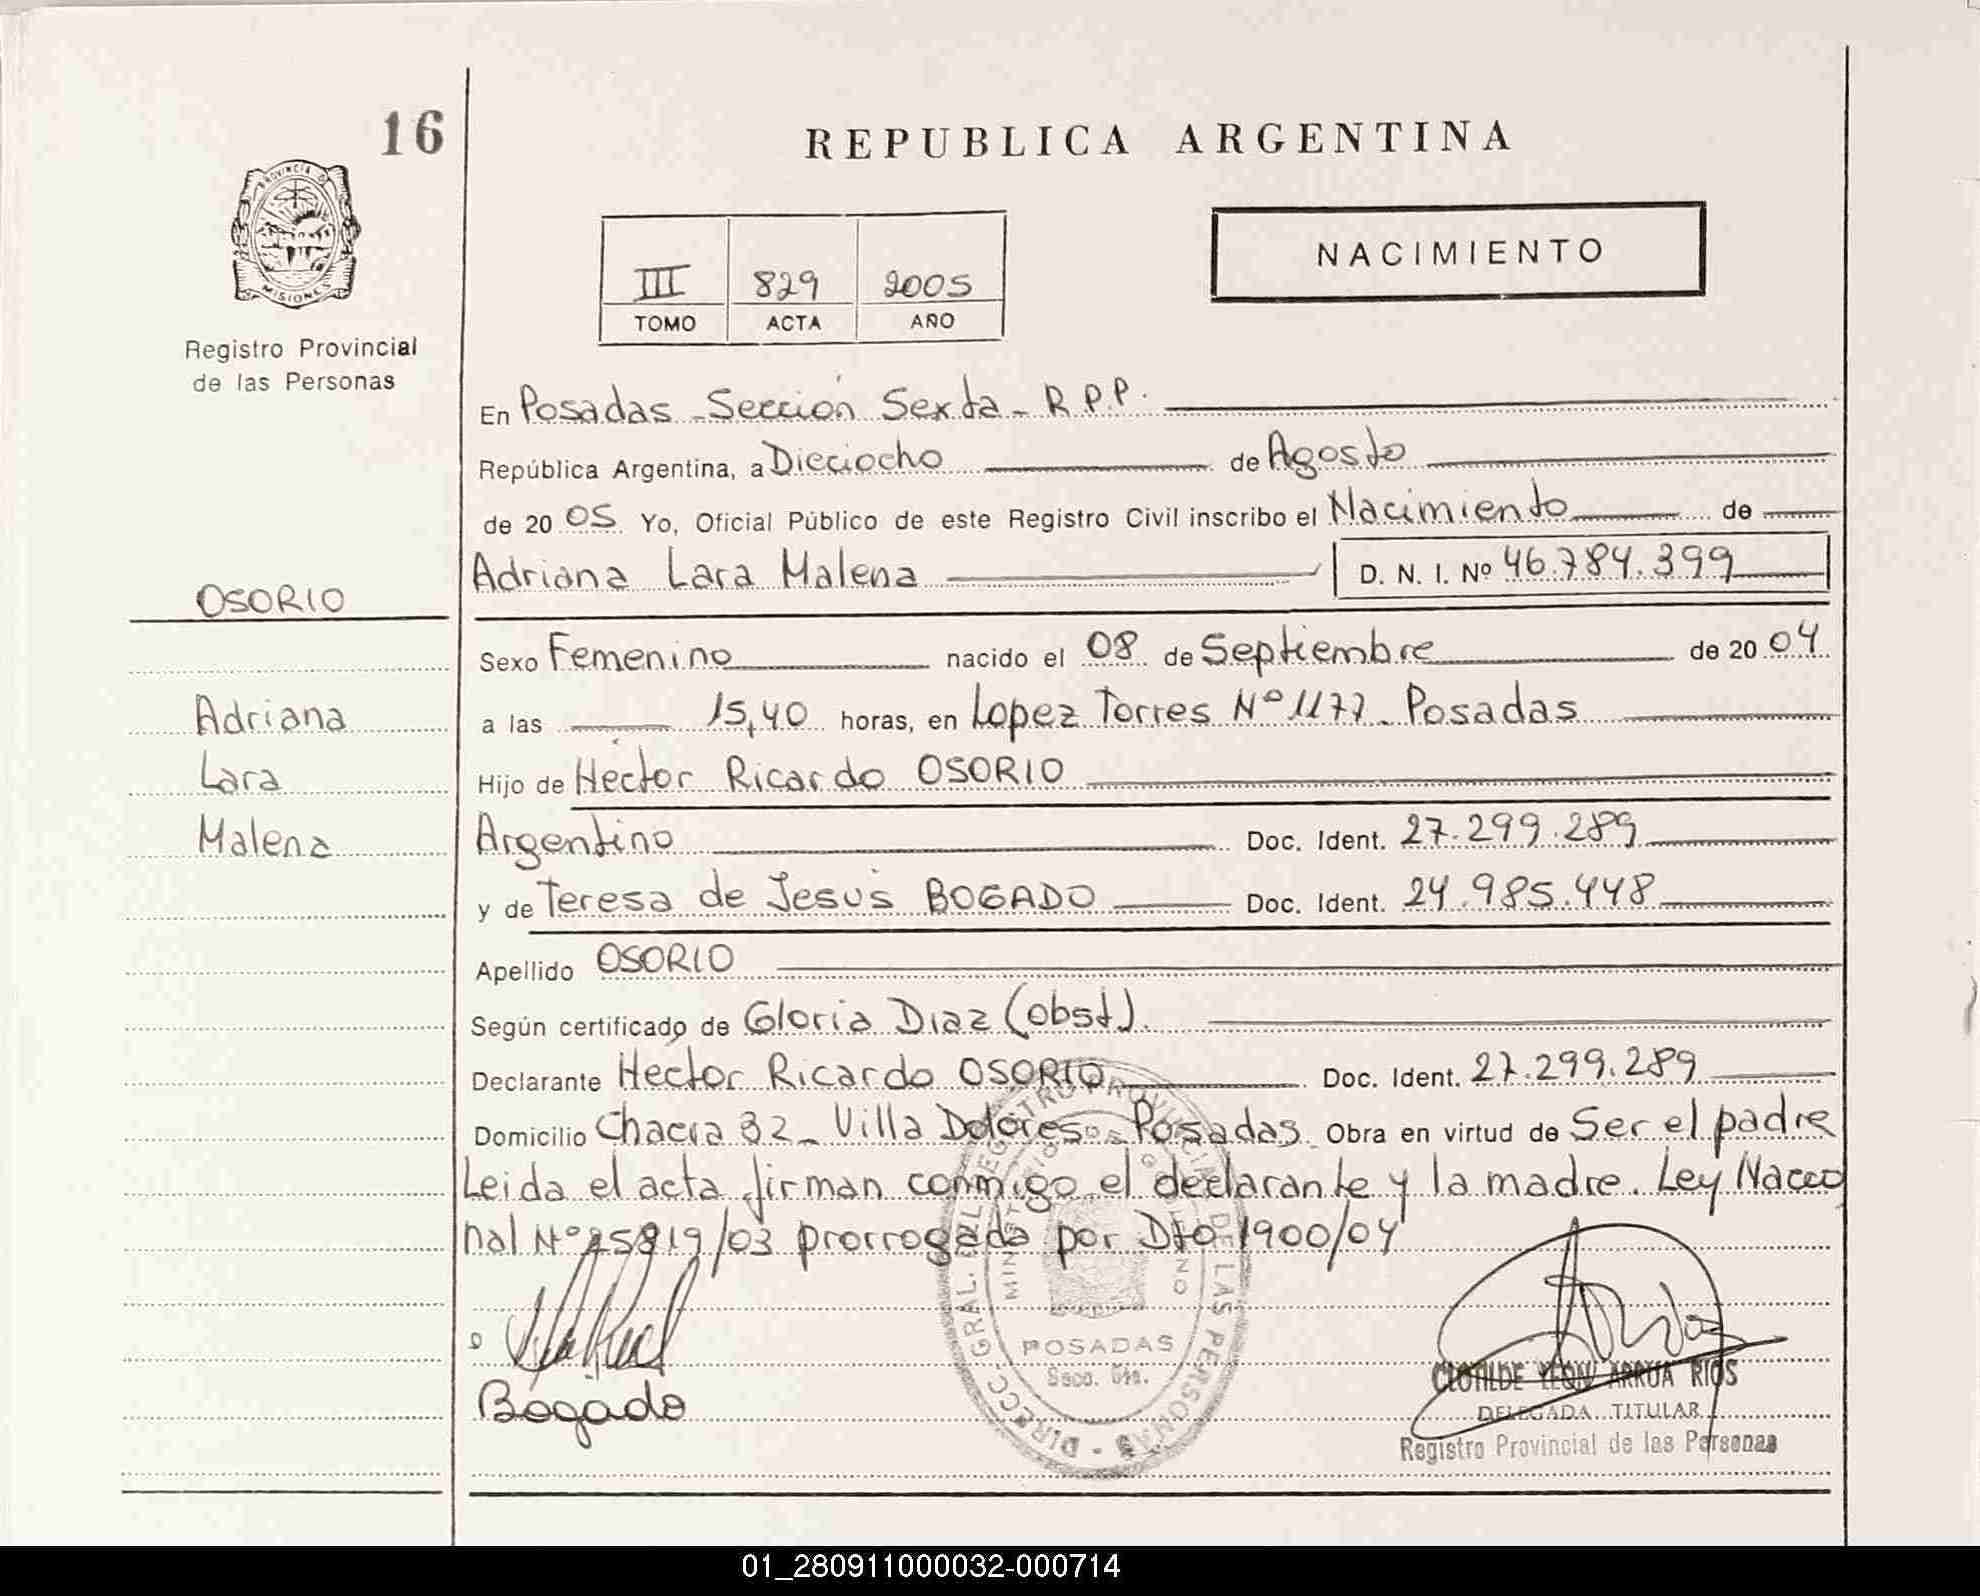 16
REPUBLICA ARGENTINA
PROVINCIA D
MISIONES
Registro Provincial
de las Personas
NACIMIENTO
III 829 2005
TOMO ACTA AÑO
En Posadas - Sección Sexta - R.P.P.
República Argentina, a Dieciocho de Agosto
de 20 05 Yo, Oficial Público de este Registro Civil inscribo el Nacimiento de
Adriana Lara Malena D. N. I. Nº 46.784.399
OSORIO
Sexo Femenino nacido el 08 de Septiembre de 20 04
Adriana
a las 15,40 horas, en Lopez Torres Nº 1177 - Posadas
Lara
Hijo de Hector Ricardo OSORIO
Malena
Argentino Doc. Ident. 27.299.289
y de Teresa de Jesús BOGADO Doc. Ident. 24.985.448
Apellido OSORIO
Según certificado de Gloria Diaz (obst).
Declarante Hector Ricardo OSORIO Doc. Ident. 27.299.289
Domicilio Chacra 32 - Villa Dolores - Posadas Obra en virtud de Ser el padre
Leida el acta firman conmigo el declarante y la madre. Ley Nacio
nal Nº 25819/03 prorrogada por Dto 1900/04
DIRECC. GRAL. DEL REGISTRO PROVINCIAL DE LAS PERSONAS
POSADAS
Secc. 6ta.
Bogado
CLOTILDE LEONI ARRUA RIOS
DELEGADA TITULAR
Registro Provincial de las Personas
01_280911000032-000714